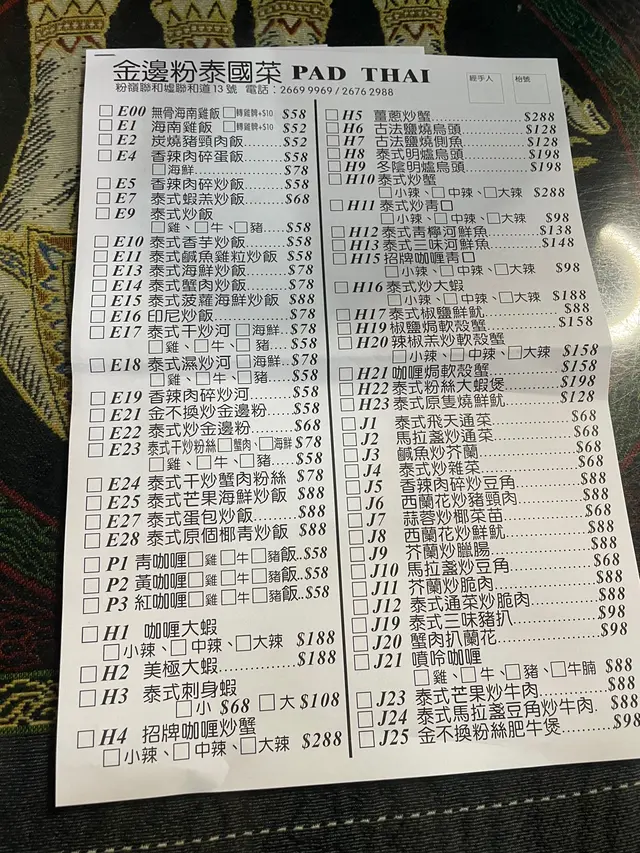 金邊粉泰國菜 PAD THAI
粉嶺聯和墟聯和道13號 電話:2669 9969 / 2676 2988
經手人
枱號
□ E00 無骨海南雞飯 □轉雞髀+$10 $58
□ E1 海南雞飯 □轉雞髀+$10 $52
□ E2 炭燒豬頸肉飯......$52
□ E4 香辣肉碎蛋飯......$58
□海鮮......$78
□ E5 香辣肉碎炒飯......$58
□ E7 泰式蝦羔炒飯......$68
□ E9 泰式炒飯
□雞、□牛、□豬....$58
□ E10 泰式香芋炒飯......$58
□ E11 泰式鹹魚雞粒炒飯 $58
□ E13 泰式海鮮炒飯......$78
□ E14 泰式蟹肉炒飯......$78
□ E15 泰式菠蘿海鮮炒飯 $88
□ E16 印尼炒飯......$78
□ E17 泰式干炒河 □海鮮..$78
□雞、□牛、□豬....$58
□ E18 泰式濕炒河 □海鮮..$78
□雞、□牛、□豬....$58
□ E19 香辣肉碎炒河......$58
□ E21 金不換炒金邊粉....$58
□ E22 泰式炒金邊粉......$68
□ E23 泰式干炒粉絲□蟹肉、□海鮮 $78
□雞、□牛、□豬.....$58
□ E24 泰式干炒蟹肉粉絲 $78
□ E25 泰式芒果海鮮炒飯 $88
□ E27 泰式蛋包炒飯......$88
□ E28 泰式原個椰青炒飯 $88
□ P1 青咖喱□雞□牛□豬飯..$58
□ P2 黃咖喱□雞□牛□豬飯..$58
□ P3 紅咖喱□雞□牛□豬飯..$58
□ H1 咖喱大蝦
□小辣、□中辣、□大辣 $188
□ H2 美極大蝦......$188
□ H3 泰式刺身蝦
□小 $68 □大 $108
□ H4 招牌咖喱炒蟹
□小辣、□中辣、□大辣 $288
□ H5 薑蔥炒蟹......$288
□ H6 古法鹽燒烏頭......$128
□ H7 古法鹽燒側魚......$128
□ H8 泰式明爐烏頭......$198
□ H9 冬陰明爐烏頭......$198
□ H10 泰式炒蟹
□小辣、□中辣、□大辣 $288
□ H11 泰式炒青口
□小辣、□中辣、□大辣 $98
□ H12 泰式青檸河鮮魚......$138
□ H13 泰式三味河鮮魚......$148
□ H15 招牌咖喱青口
□小辣、□中辣、□大辣 $98
□ H16 泰式炒大蝦
□小辣、□中辣、□大辣 $188
□ H17 泰式椒鹽鮮魷......$88
□ H19 椒鹽焗軟殼蟹......$158
□ H20 辣椒羔炒軟殼蟹
□小辣、□中辣、□大辣 $158
□ H21 咖喱焗軟殼蟹......$158
□ H22 泰式粉絲大蝦煲......$198
□ H23 泰式原隻燒鮮魷......$128
□ J1 泰式飛天通菜......$68
□ J2 馬拉盞炒通菜......$68
□ J3 鹹魚炒芥蘭......$68
□ J4 泰式炒雜菜......$68
□ J5 香辣肉碎炒豆角......$88
□ J6 西蘭花炒豬頸肉......$88
□ J7 蒜蓉炒椰菜苗......$68
□ J8 西蘭花炒鮮魷......$88
□ J9 芥蘭炒臘腸......$88
□ J10 馬拉盞炒豆角......$68
□ J11 芥蘭炒脆肉......$88
□ J12 泰式通菜炒脆肉......$88
□ J19 泰式三味豬扒......$98
□ J20 蟹肉扒蘭花......$98
□ J21 噴呤咖喱
□雞、□牛、□豬、□牛腩 $88
□ J23 泰式芒果炒牛肉......$88
□ J24 泰式馬拉盞豆角炒牛肉. $88
□ J25 金不換粉絲肥牛煲......$98